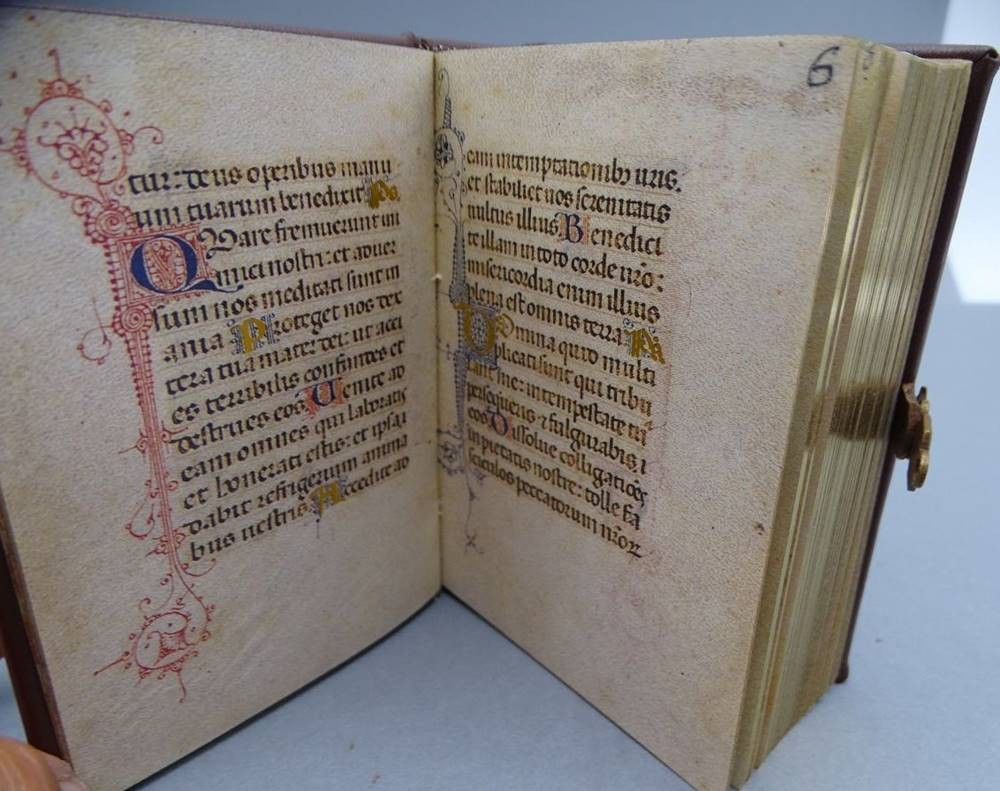 tur: deus operibus manu
um tuarum benedixit Ps
Quare fremuerunt in
imici nostri: et aduer
sum nos meditati sunt in
ania Proteget nos dex
tera tua mater dei: ut aci
es terribilis confringes et
destrues eos. Uenite ad
eam omnes qui laboratis
et honerati estis: et ipsa
dabit refrigerium anima
bus uestris. Accedite ad
6
eam in temptationibȝ uris.
et stabiliet uos serenitatis
uultus illius Benedici
te illam in toto corde uro:
misericordia enim illius
plena est omnis terra Ps
Domina quid multi
plicati sunt qui tribu
lant me: in tempestate tua
persequeris ⁊ fulgurabis i
eos Dissolue colligatioes
impietatis nostre: tolle fa
sciculos peccatorum nroꝝ